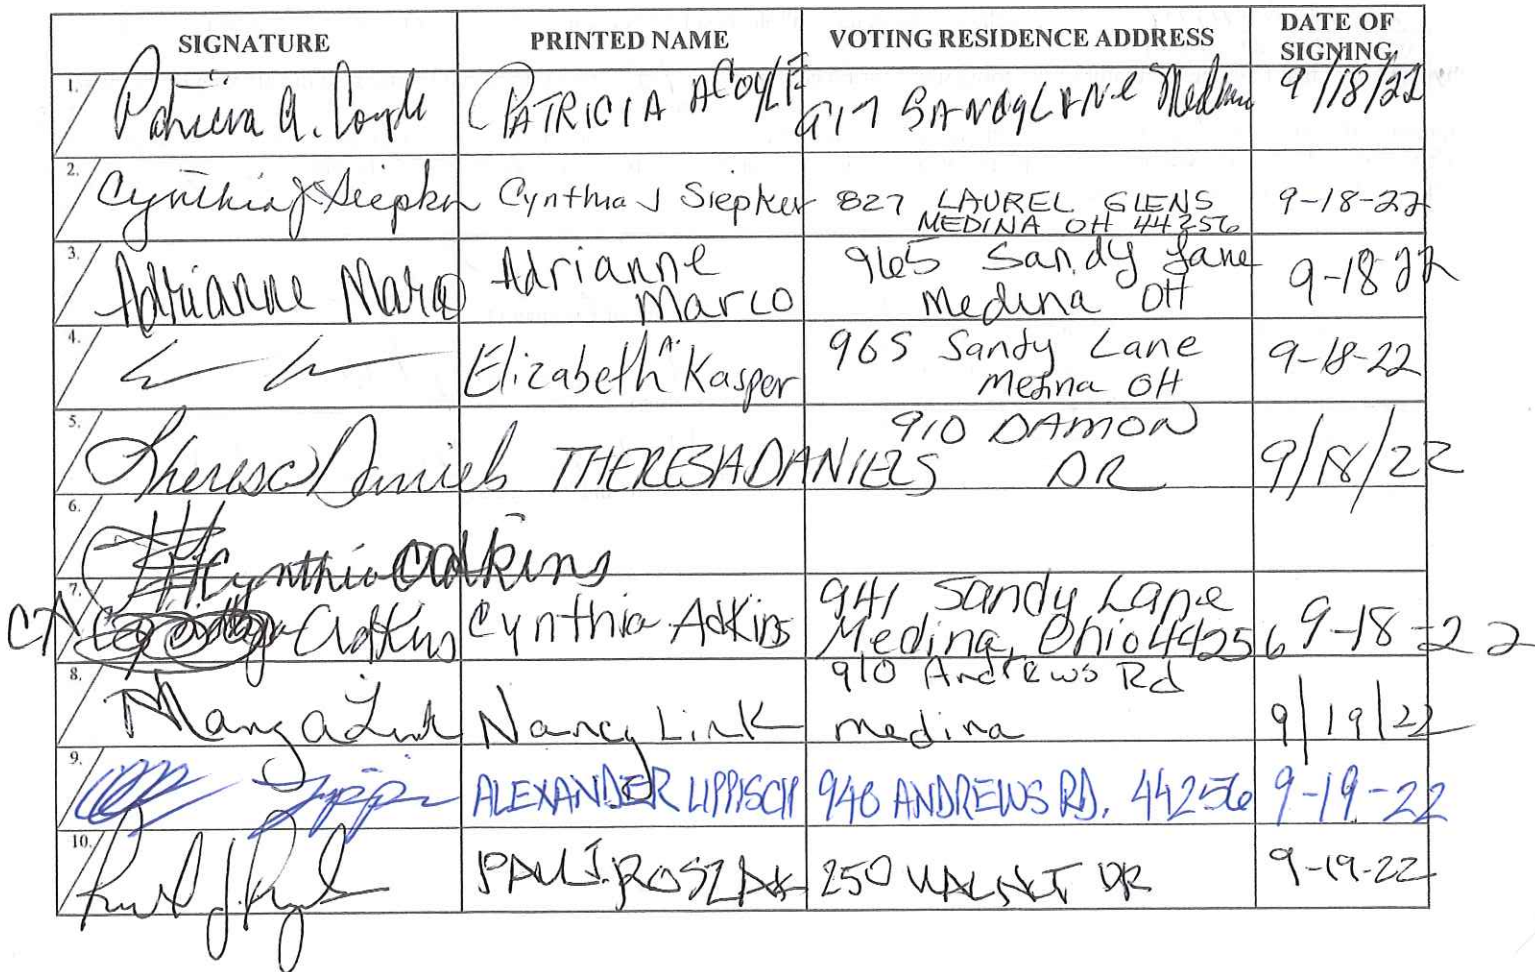 SIGNATURE PRINTED NAME VOTING RESIDENCE ADDRESS DATE OF SIGNING
1. Patricia A. Coyle PATRICIA A COYLE 917 SANdyLANe Medina 9/18/22
2. Cynthia J Siepker Cynthia J Siepker 827 LAUREL GLENS 9-18-22
MEDINA OH 44256
3. Adrianne Marco Adrianne 965 Sandy Lane 9-18 22
Marco Medina OH
4. Elizabeth A. Kasper 965 Sandy Lane 9-18-22
Medina OH
5. Theresa Daniels THERESA DANIELS 910 DAMON 9/18/22
DR
6. Cynthia Adkins
7. CA Adkins Cynthia Adkins 941 Sandy Lane 9-18-22
Medina, Ohio 44256
8. Nancy A Link Nancy Link 910 Andrews Rd 9/19/22
medina
9. ALEXANDER LIPPISCH 940 ANDREWS RD. 44256 9-19-22
10. PAUL J. ROSZAK 250 WALNUT DR 9-19-22